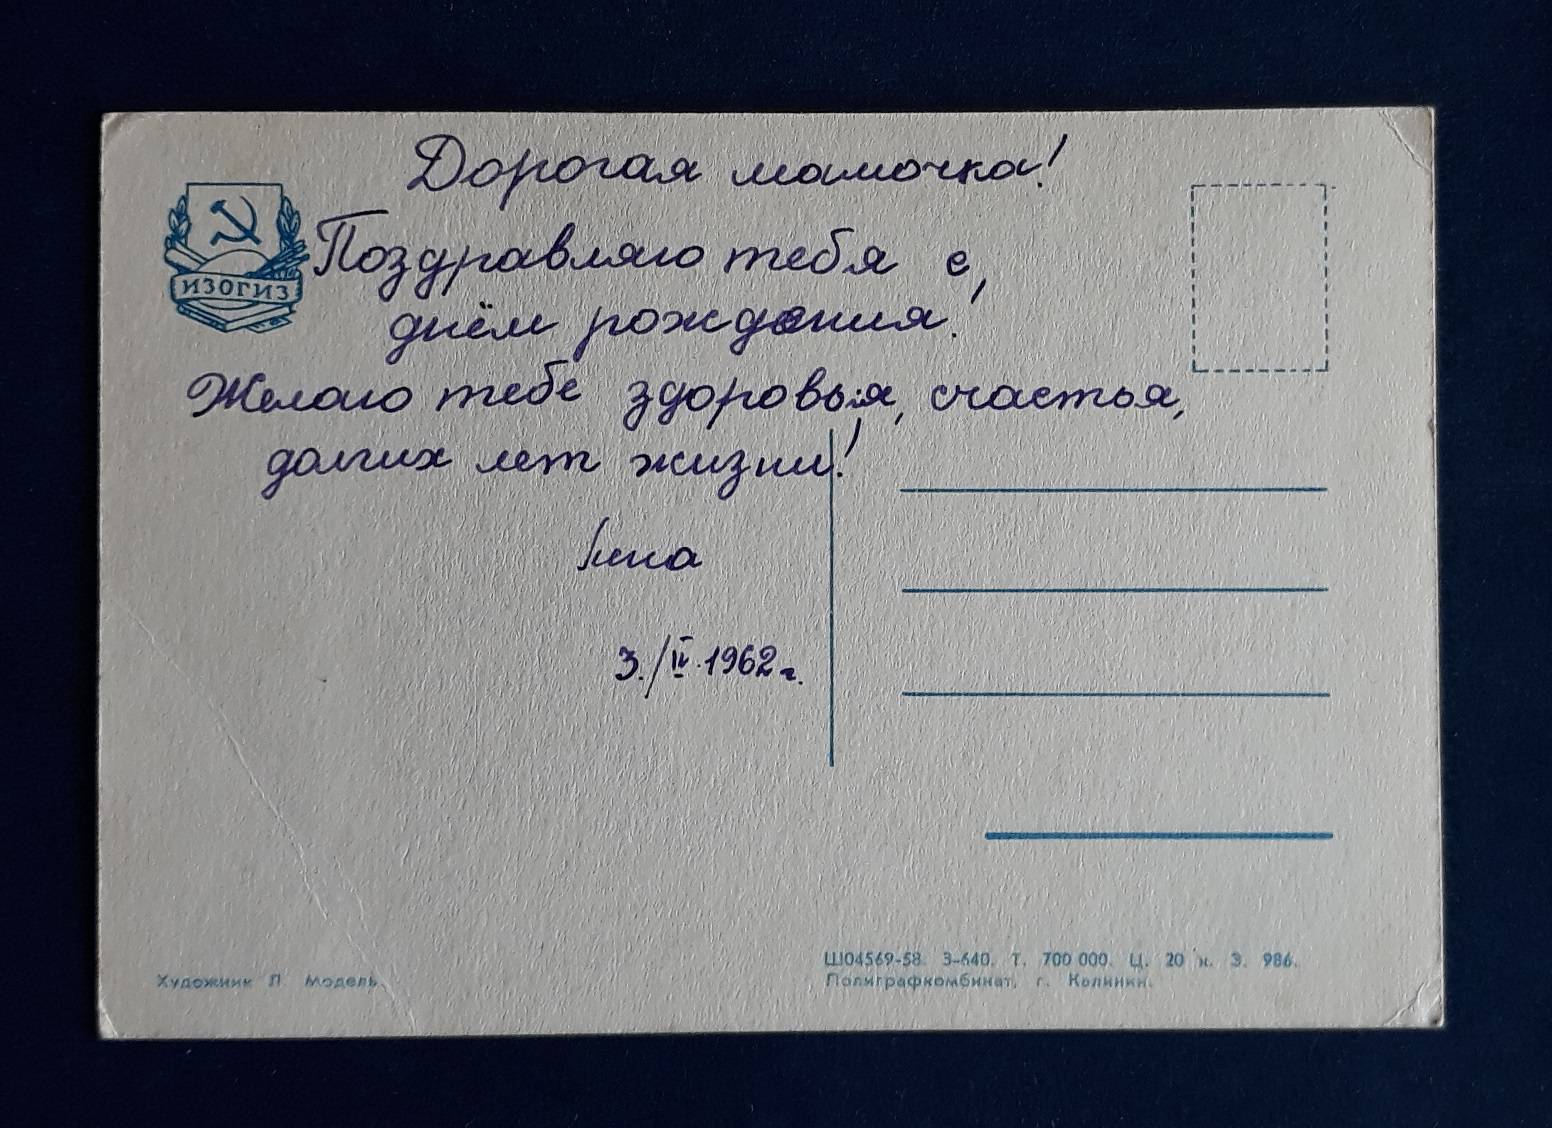 Дорогая мамочка!
ИЗОГИЗ
Поздравляю тебя с
днём рождения!
Желаю тебе здоровья, счастья,
долгих лет жизни!
3./IV.1962 г.
Художник Л. Модель
Ш04569-58. З-640. Т. 700 000. Ц. 20 к. З. 986.
Полиграфкомбинат, г. Калинин.